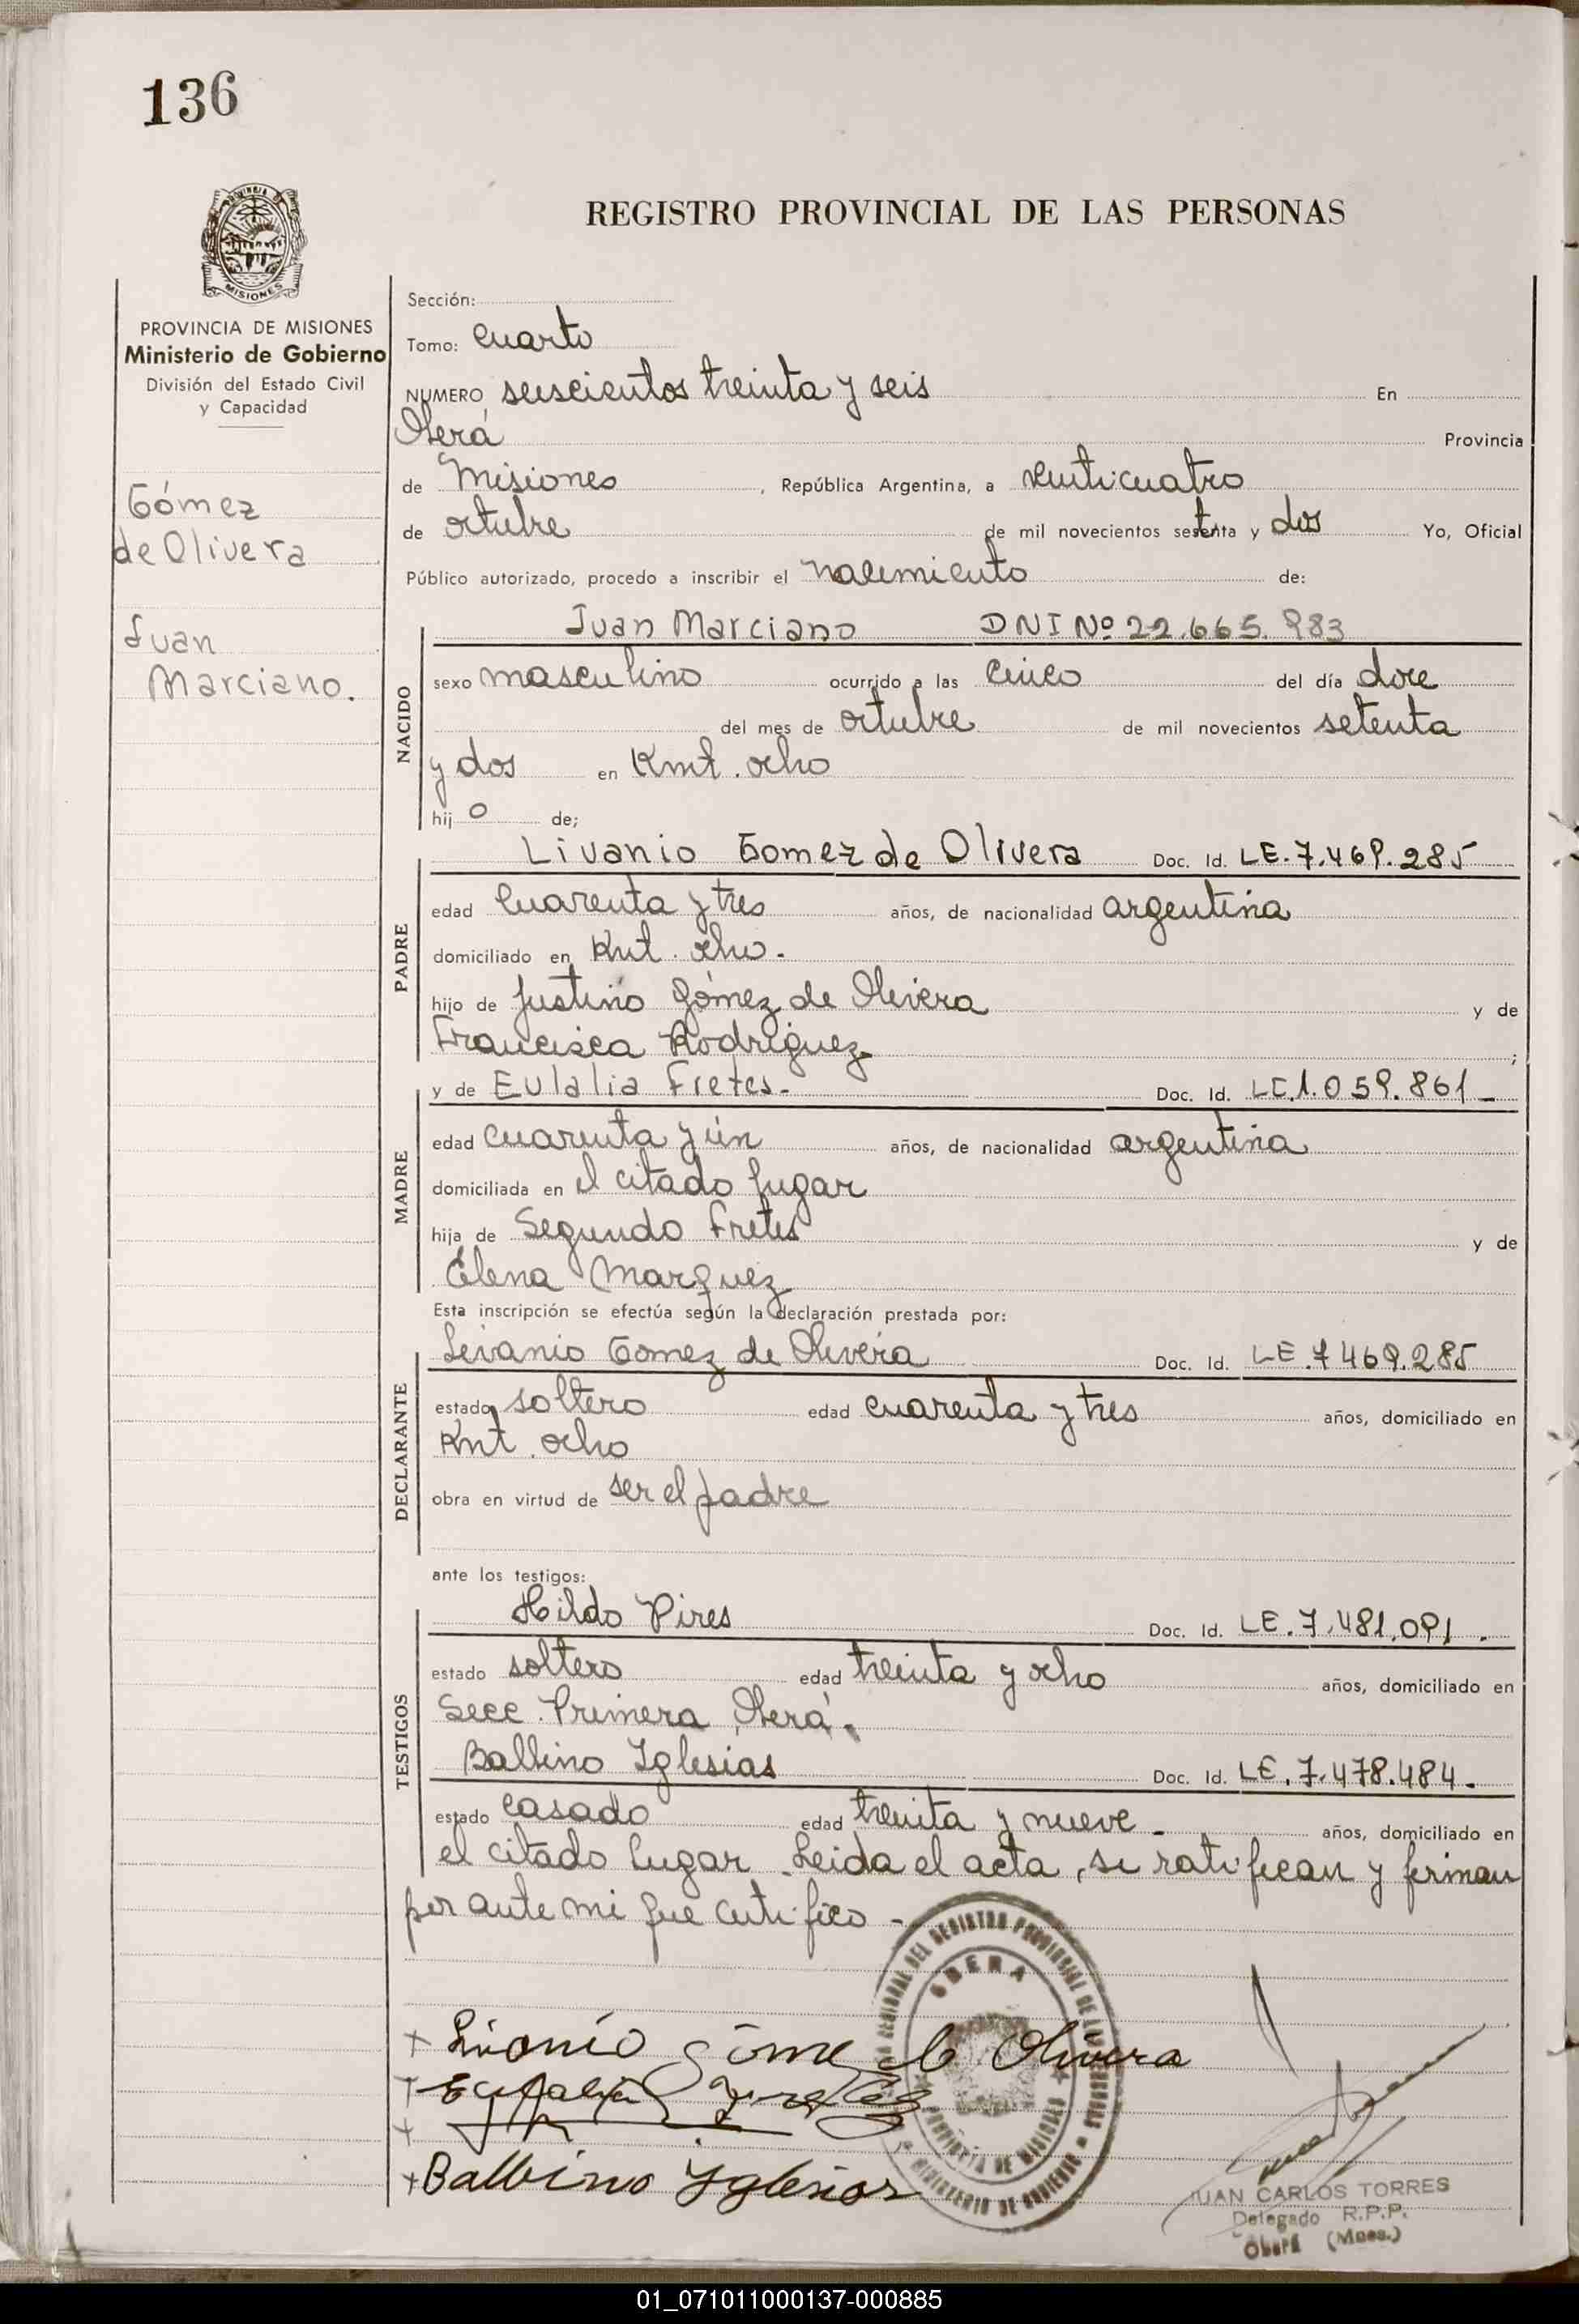 136
PROVINCIA DE
MISIONES
REGISTRO PROVINCIAL DE LAS PERSONAS
PROVINCIA DE MISIONES
Ministerio de Gobierno
División del Estado Civil
y Capacidad
Gómez
de Olivera
Juan
Marciano.
Sección:
Tomo: Cuarto
NUMERO seiscientos treinta y seis En
Oberá Provincia
de Misiones, República Argentina, a venticuatro
de octubre de mil novecientos setenta y dos Yo, Oficial
Público autorizado, procedo a inscribir el nacimiento de:
NACIDO
Juan Marciano DNI Nº 22.665.983
sexo masculino ocurrido a las cinco del día doce
del mes de octubre de mil novecientos setenta
y dos en Kmt. ocho
hijo de;
PADRE
Livanio Gomez de Olivera Doc. Id. LE. 7.469.285
edad cuarenta y tres años, de nacionalidad argentina
domiciliado en Kmt. ocho.
hijo de Justino Gómez de Olivera y de
Francisca Rodriguez;
MADRE
y de Eulalia Fretes. Doc. Id. LC.1.059.861
edad cuarenta y ún años, de nacionalidad argentina
domiciliada en el citado lugar
hija de Segundo Fretes y de
Elena Marquez
Esta inscripción se efectúa según la declaración prestada por:
DECLARANTE
Livanio Gomez de Olivera Doc. Id. LE. 7 469.285
estado soltero edad cuarenta y tres años, domiciliado en
Kmt. ocho
obra en virtud de ser el padre
ante los testigos:
TESTIGOS
Hildo Pires Doc. Id. LE. 7.481.091.
estado soltero edad treinta y ocho años, domiciliado en
Secc. Primera, Oberá.
Balbino Iglesias Doc. Id. LE. 7.478.484.
estado casado edad treinta y nueve años, domiciliado en
el citado lugar. Leida el acta, se ratifican y firman
por ante mi que certifico -
Livanio Gome de Olivera
Eulalia Fretes
Balbino Yglesias
REGIONAL DEL REGISTRO PROVINCIAL DE LAS PERSONAS
OBERA
PROVINCIA DE MISIONES
MINISTERIO DE GOBIERNO
JUAN CARLOS TORRES
Delegado R.P.P.
Oberá (Mnes.)
01_071011000137-000885